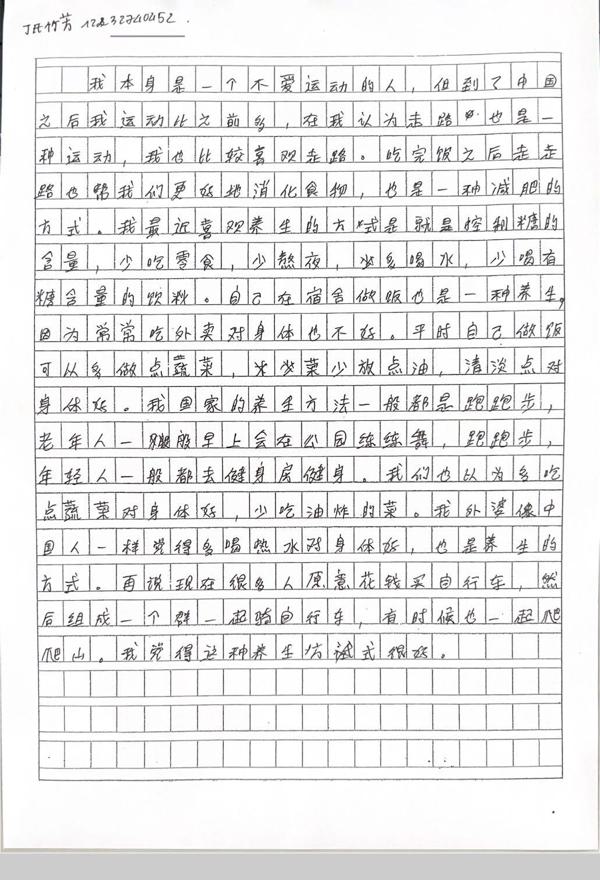 竹芳 12323240452.
我本身是一个不爱运动的人,但到了中国
之后我运动比之前多,在我认为走路也是一
种运动,我也比较喜欢走路。吃完饮之后走走
路也帮我们更好地消化食物,也是一种减肥的
方式。我最近喜欢养生的方式是就是控制糖的
含量,少吃零食,少熬夜,多喝水,少喝有
糖含量的饮料。自己在宿舍做饭也是一种养生。
因为常常吃外卖对身体也不好。平时自己做饭
可以多做点蔬菜,炒菜少放点油,清淡点对
身体好。我国家的养生方法一般都是跑跑步,
老年人一般早上会在公园练练舞,跑跑步,
年轻人一般都去健身房健身。我们也认为多吃
点蔬菜对身体好,少吃油炸的菜。我外婆像中
国人一样觉得多喝热水对身体好,也是养生的
方式。再说现在很多人愿意花钱买自行车,然
后组成一个群一起骑自行车,有时候也一起爬
爬山。我觉得这种养生方式很好。